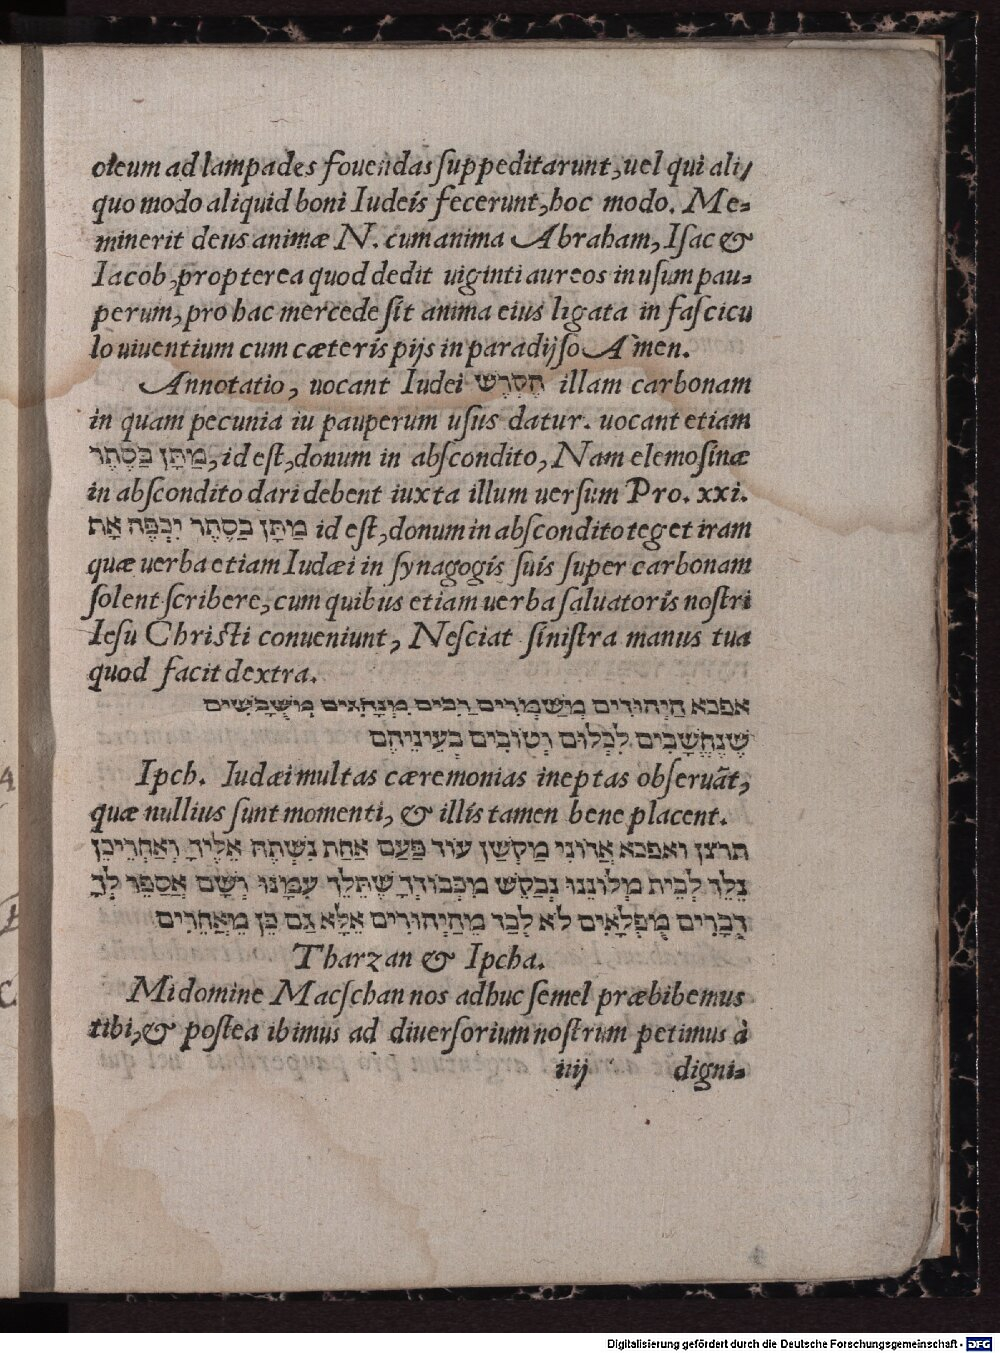 oleum ad lampades fouendas suppeditarunt, uel qui ali/
quo modo aliquid boni Iudeis fecerunt, hoc modo. Me=
minerit deus animæ N. cum anima Abraham, Isac &
Iacob, propterea quod dedit uiginti aureos in usum pau=
perum, pro hac mercede sit anima eius ligata in fascicu
lo uiuentium cum cæteris pijs in paradijso Amen.
Annotatio, uocant Iudei illam carbonam
in quam pecunia iu pauperum usus datur. uocant etiam
מַתָּן בַּסֵתֶר, id est, donum in abscondito, Nam elemosinæ
in abscondito dari debent iuxta illum uersum Pro. xxi.
מַתָּן בַּסֵתֶר יִכְפֶּה אַת id est, donum in abscondito teget iram
quæ uerba etiam Iudæi in synagogis suis super carbonam
solent scribere, cum quibus etiam uerba saluatoris nostri
Iesu Christi conueniunt, Nesciat sinistra manus tua
quod facit dextra.
אפכא הַיְהוּדִים מְשַׁמְּרִים רַבִּים מִנְהָגִים מְשֻׁבָּשִׁים
שֶׁנֶּחֱשָׁבִים לִכְלוּם וְטוֹבִים בְּעֵינֵיהֶם
Ipch. Iudæi multas cæremonias ineptas obseruãt,
quæ nullius sunt momenti, & illis tamen bene placent.
תרצן ואפכא אֲדוֹנִי מַקְשַׁן עוֹד פַּעַם אַחַת נִשְׁתֶּה אֵלֶיךָ וְאַחֲרֵיכֵן
נֵלֵךְ לְבֵית מְלוֹנֵנוּ נְבַקֵּשׁ מִכְּבוֹדְךָ שֶׁתֵּלֵךְ עִמָּנוּ וְשָׁם אֲסַפֵּר לְךָ
דְבָרִים מֻפְלָאִים לֹא לְבַד מֵהַיְהוּדִים אֶלָּא גַם כֵּן מֵאֲחֵרִים
Tharzan & Ipcha.
Mi domine Macschan nos adhuc semel præbibemus
tibi, & postea ibimus ad diuersorium nostrum petimus à
iiij digni=
Digitalisierung gefördert durch die Deutsche Forschungsgemeinschaft - DFG